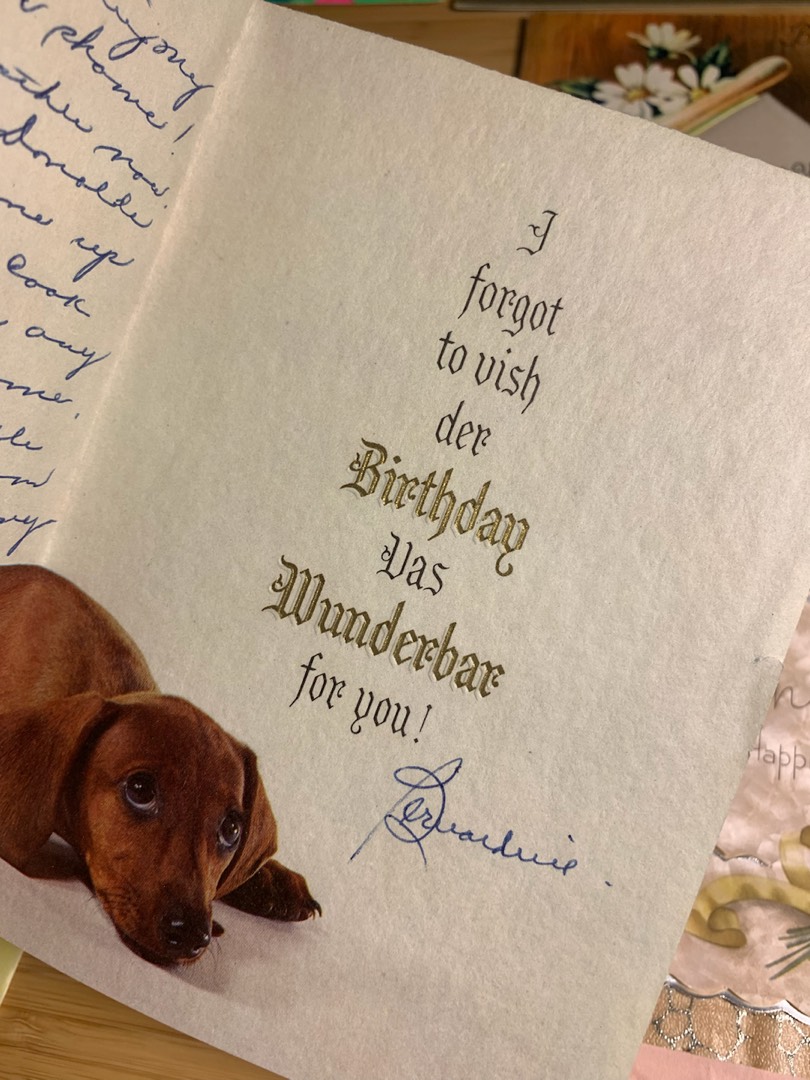 phone!
now.
Donalds
me up
Cook
any
me.
I
forgot
to vish
der
Birthday
Vas
Wunderbar
for you!
Bernardine.
Happ